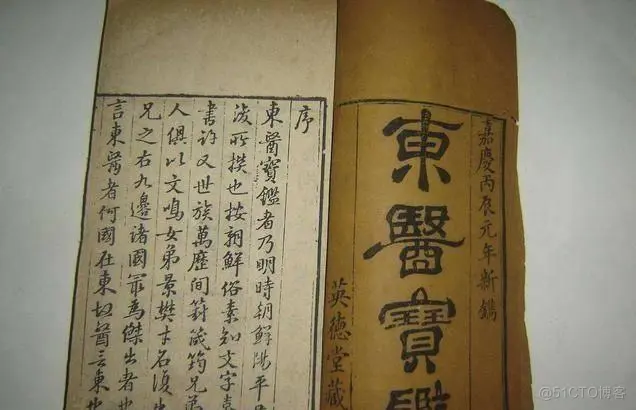 嘉慶丙辰元年新鐫
東醫寶鑑
英德堂藏
序
東醫寶鑑者乃明時朝鮮陽平
浚所撰也按朝鮮俗素知文字喜
書許又世族萬歷間篈筬筠兄弟
人俱以文鳴女弟景樊才名復出
兄之右九邊諸國㝡為傑出者也
言東醫者何國在東故醫言東也
@51CTO博客